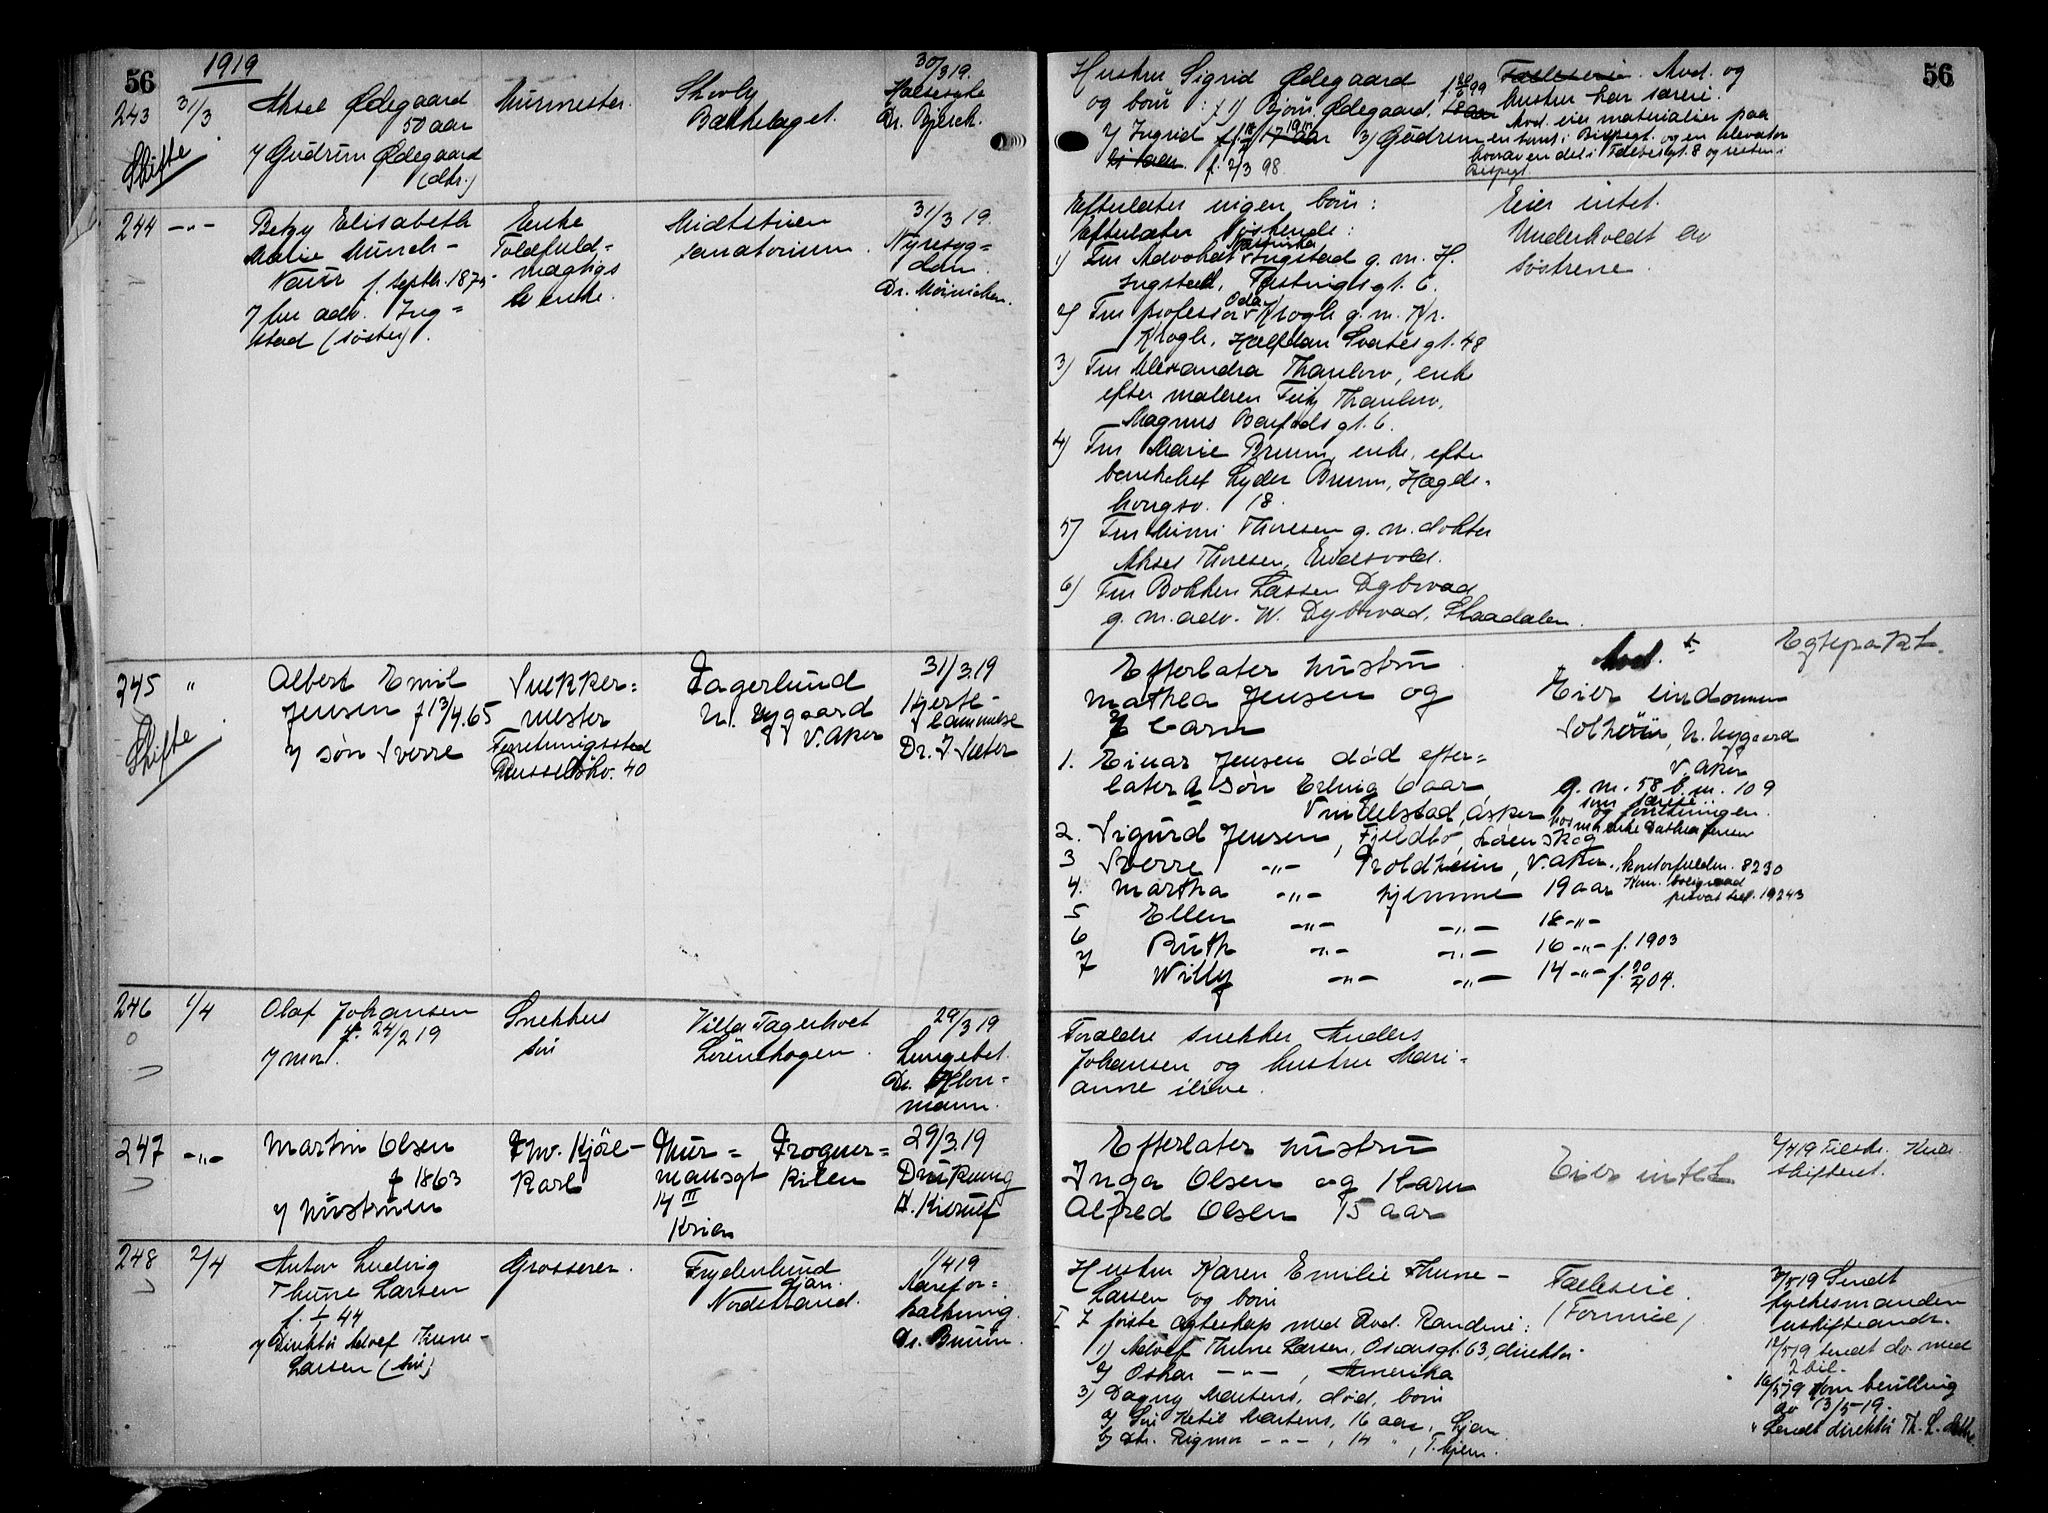 56
1919
243 31/3 Aksel Ødegaard
50 aar
v/ Gudrun Ødegaard
(dtr.)
Skifte
Murmester.
Skovly
Bækkelaget.
30/3 19.
Halsesyke
Dr. Bjerch.
244 -"- Betzy Elisabeth
Marie Munch-
Naur f. septbr. 1875
v/ fru adv. Ing=
stad (søster).
Enke
Toldfuld=
mægtigs
enke.
Midtstuen
sanatorium.
31/3 19.
Nyresyg=
dom.
Dr. Moinichen.
245 "
Skifte
Albert Emil
Jensen f 13/4.65
v/ søn Sverre
Snekker=
mester
Forretningssted
40
Fagerlund
N. Nygaard
V. Aker
31/3.19
Hjerte-
lammelse
Dr. J Sæter
246 1/4 Olaf Johansen
f. 24/2 19
v/ mor.
Snekker
søn
Villa Fagerhvet
Lørenskogen.
29/3 19
Lungebet.
Dr.
mann.
247 -"- Martin Olsen
f 1863
v/ hustruen
Fhv. Kjøre-
Karl
Mur=
mansgt
14 III
Kria
Frogner=
kilen
29/3.19
Drukning
248 2/4 Anton Ludvig
Thune Larsen
f. 44
v/ Direktør Advef Thune-
Larsen (søn)
Grosserer.
Frydenlund
Ljan.
Nordstrand.
1/4 19
Aarefor=
kalkning.
Dr. Bruun.
56
Hustru Sigrid Ødegaard
og børn: 1) Bjørn Ødegaard, 18 aar
2) Ingrid 17 aar 3) Gudrun
f. 2/3 98
Fælleseie. Avd. og
hustru har særeie.
Avd. eier materialier paa
en tomt i Bispegt. og en elevator
hvorav en del i gt. 8 og resten i
Bispegt.
Efterlater ingen børn:
Efterlater søskende:
1) Fru Advokat Ingstad g. m. H.
Ingstad, Fastingsgt. 6.
2) Fru professor Oda Krogh g. m. Kr.
Krogh, Halfdan Svartesgt. 48
3) Fru Alexandra Thaulow, enke
efter maleren Fritz Thaulow,
Magnus Barfodsgt. 6.
4) Fru Marie Bruun, enke efter
Lyder Bruun, Hægde-
haugsv. 18.
5) Fru Mimi Thoresen g. m. doktor
Aksel Thoresen, Eidsvold.
6) Fru Bokken Lassen Dybwad
g. m. adv. W. Dybwad, Skaadalen.
Eier intet.
Underholdt av
søstrene.
Efterlater hustru
Mathea Jensen og
7 barn
1. Einar Jensen død efter=
later 1 søn Erling 6 aar
Asker
2. Sigurd Jensen, Fjeldbo, Lørenskog
3 Sverre -"- Troldheim, V. Aker.
4. Martha -"- hjemme 19 aar
5 Ellen -"- -"- 18 -"-
6 Ruth -"- -"- 16 -"- f. 1903
7 Willy -"- -"- 14 -"- f. 04.
Avd.
Eier eindommen
N. Nygaard
V. Aker
g. m. 58 b. m. 109
som særeie
og forretningen.
8230
privat tel. 19243
Egtepakt.
Forældre snekker Anders
Johansen og hustru Mari-
anne ilive.
Efterlater hustru
Inga Olsen og 1 barn
Alfred Olsen 15 aar
Eier intet
Tilstr.
skifteret.
Hustru Karen Emilie Thune-
Larsen og børn
I I første egteskap med Avd. Randine:
1) Advef Thune Larsen, Oscarsgt. 63, direktør
2) Oskar -"-, Amerika
3) Dagny Martens, død, børn
a) Søn Ketil Martens, 16 aar, Ljan
b) Dtr. Rigmor -"-, 14 ", T. hjem.
Fælleseie.
(Formue)
Sendt
fylkesmanden
uskifteandr.
12/5 19 sendt do. med
2 bil.
16/5 19 kom bevilling
av 13/5-19.
" Sendt direktør Th. L.